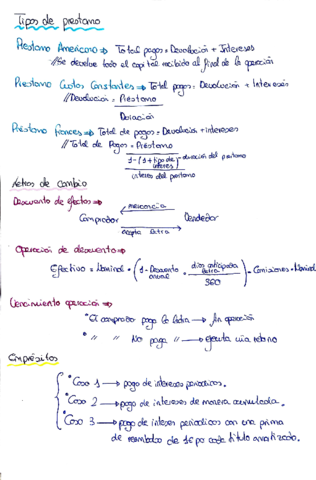 Tipos de prestamo
Prestamo Americano ⇒ Total pagos = Devolución + Intereses
//Se devuelve todo el capital recibido al final de la operación
Prestamo Cuotas Constantes ⇒ Total pagos = Devolución + Intereses
//Devolución = Préstamo
Duración
Préstamo frances ⇒ Total de pagos = Devolución + intereses
// Total de Pagos = Préstamo
1-(1+tipo de interes)^-duración del prestamo
interes del prestamo
Letras de cambio
Descuento de efectos ⇒
mercancia
Comprador Vendedor
acepta letra
Operación de descuento ⇒
Efectivo = Nominal · (1 - Descuento anual · dias anticipada letra / 360) - Comisiones · Nominal
Vencimiento operación ⇒
• El comprador paga la letra → fin operación
• // // No paga // → ejecuta via
Empréstitos
• Caso 1 → pago de intereses periodicos.
• Caso 2 → pago de intereses de manera acumulada.
• Caso 3 → pago de interes periodicos con una prima
de reembolso de 1€ po cada titulo amortizado.